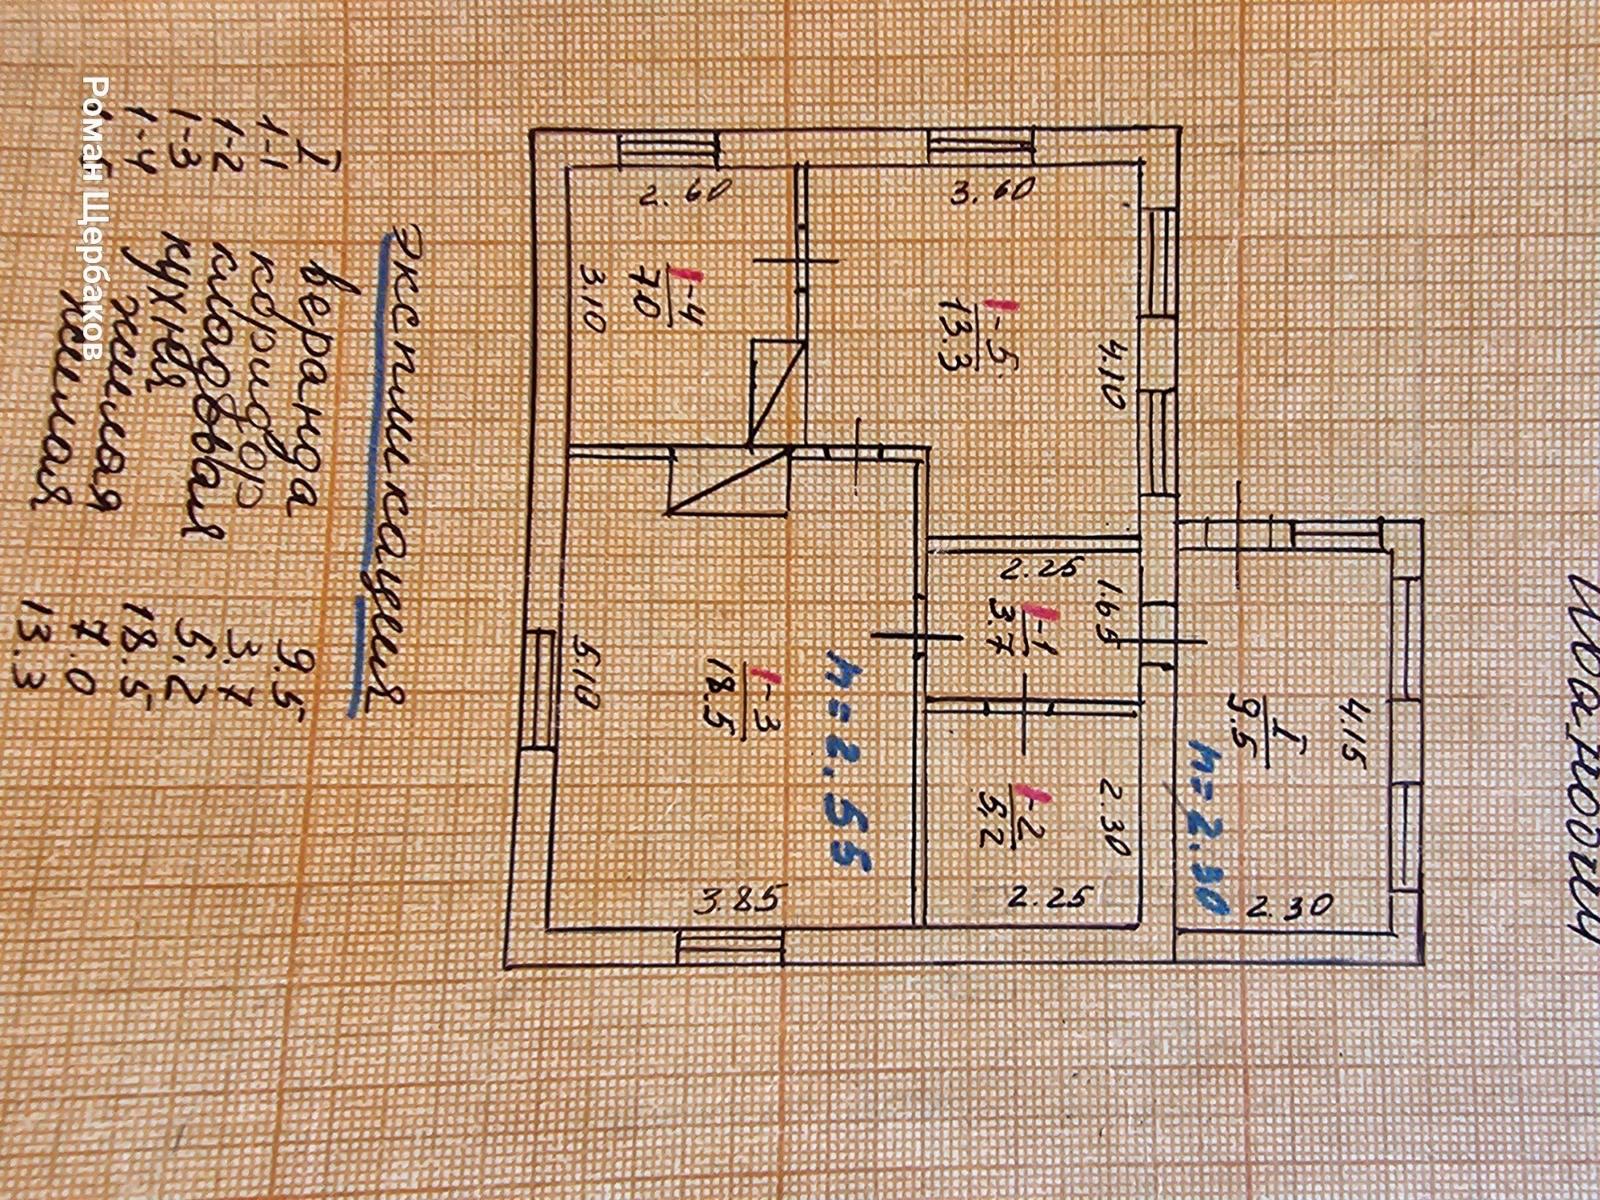 4.15
I
9.5
2.30
h=2.30
4.10
1.65
2.30
1-5
13.3
3.60
1-1
3.7
2.25
1-2
5.2
2.25
h=2.55
1-3
18.5
3.85
1-4
7.0
2.60
3.10
5.10
экспликация
I веранда 9.5
1-1 коридор 3.7
1-2 кладовая 5.2
1-3 кухня 18.5
1-4 жилая 7.0
жилая 13.3
Роман Щербаков